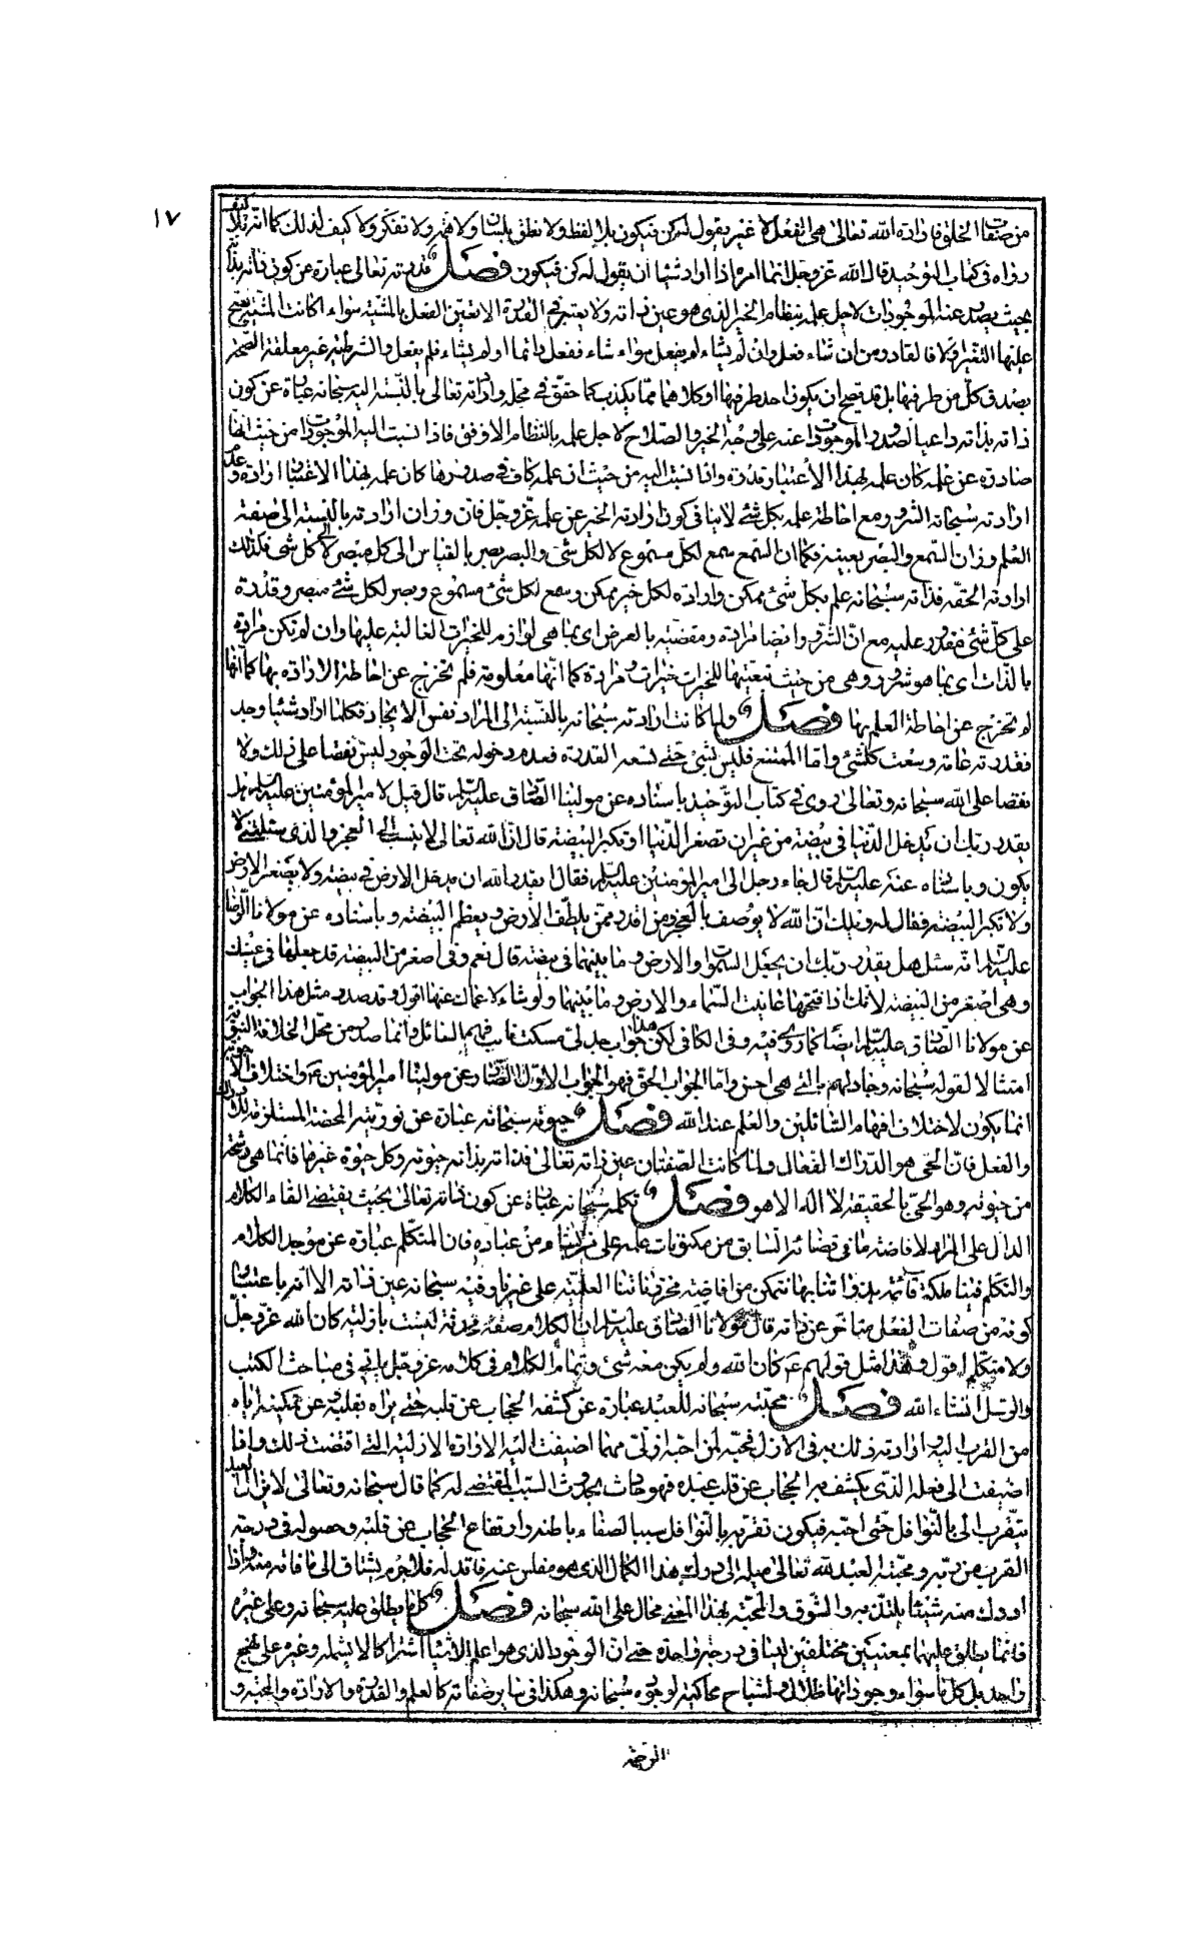 ١٧
من صفات الخلق فارادة الله تعالى هى الفعل لا غير يقول له كن فيكون بلا لفظ ولا نطق بلسان ولا همة ولا تفكر ولا كيف لذلك كما انه بلا كيف
رواه فى كتاب التوحيد قال الله عز وجل انما امره اذا اراد شيئا ان يقول له كن فيكون فصل قدرته تعالى عبارة عن كون ذاته بذاته
بحيث يصدر عنه الموجودات لاجل علمه بنظام الخير الذى هو عين ذاته ولا يعتبر فى القدرة الا تعين الفعل بالمشية سواء كانت المشية يصح
عليها التغير ام لا فالقادر من ان شاء فعل وان لم يشاء لم يفعل سواء شاء ففعل دائما او لم يشاء فلم يفعل والشرطية غير معلقة الصحة
بصدق كل من طرفيها بل قد تصح ان يكون احد طرفيها او كلاهما مما يكذب كما حقق فى محله وارادته تعالى بالنسبة اليه سبحانه عبارة عن كون
ذاته بذاته داعيا لصدور الموجودات عنه على وجه الخير والصلاح لاجل علمه بالنظام الاوفق فاذا نسبت اليه الموجودات من حيث انها
صادرة عن علمه كان علمه بهذا الاعتبار قدرة واذا نسبت اليه من حيث ان علمه كاف فى صدورها كان علمه بهذا الاعتبار ارادة وعدم
ارادته سبحانه الشرور مع احاطة علمه بكل شئ لا ينافى كون ارادته الخير عن علمه عز وجل فان وزان ارادته بالنسبة الى صفة
العلم وزان السمع والبصر بعينه فكما ان السمع سمع لكل مسموع لا لكل شئ والبصر بصر بالقياس الى كل مبصر لا الى كل شئ فكذلك
ارادته الحقه فذاته سبحانه علم بكل شئ ممكن وارادة لكل خير ممكن وسمع لكل شئ مسموع وبصر لكل شئ مبصر وقدرة
على كل شئ مقدور عليه مع ان الشرور ايضا مرادة ومقضيه بالعرض اى بما هى لوازم للخيرات الغالبة عليها وان لم تكن مرادة
بالذات اى بما هو شرور وهى من حيث تبعيتها للخيرات خيرات ومرادة كما انها معلومة فلم تخرج عن احاطة الارادة بها كما انها
لم تخرج عن احاطة العلم بها فصل ولما كانت ارادته سبحانه بالنسبة الى المراد نفس الايجاد فكلما اراد شيئا وجد
فقدرته عامة وسعت كل شئ واما الممتنع فليس بشئ حتى تسعه القدرة فعدم دخوله تحت الوجود ليس نقصا على ذلك ولا
نقصا على الله سبحانه وتعالى روى فى كتاب التوحيد باسناده عن مولينا الصادق عليه السلام قال قيل لامير المؤمنين عليه السلام هل
يقدر ربك ان يدخل الدنيا فى بيضة من غير ان تصغر الدنيا او تكبر البيضة قال ان الله تعالى لا ينسب الى العجز والذى سئلتنى لا
يكون وباسناده عنه عليه السلام قال جاء رجل الى امير المؤمنين عليه السلام فقال ايقدر الله ان يدخل الارض فى بيضة ولا يصغر الارض
ولا تكبر البيضة فقال له ويلك ان الله لا يوصف بالعجز ومن اقدر ممن يلطف الارض ويعظم البيضة وباسناده عن مولانا الرضا
عليه السلام انه سئل هل يقدر ربك ان يجعل السموات والارض وما بينهما فى بيضة قال نعم وفى اصغر من البيضة قد جعلها فى عينك
وهى اصغر من البيضة لانك اذا فتحتها عاينت السماء والارض وما بينهما ولو شاء لاعماك عنها اقول وقد صدر مثل هذا الجواب
عن مولانا الصادق عليه السلام ايضا كما روى فيه وفى الكافى لكن هذا جواب جدلى مسكت ناسب فهم السائل وانما صدر من محل الخلافة النبوية
امتثالا لقوله سبحانه وجادلهم بالتى هى احسن واما الجواب الحق فهو الجواب الاول الصادر عن مولينا امير المؤمنين ع واختلاف الاجوبة
انما يكون لاختلاف افهام السائلين والعلم عند الله فصل حيوته سبحانه عبارة عن نوريته المحضة المستلزمة للادراك
والفعل فان الحى هو الدراك الفعال ولما كانت الصفتان عين ذاته تعالى فذاته بذاته حيوته وكل حيوة غيرها فانما هى رشحة
من حيوته وهو الحى بالحقيقة لا اله الا هو فصل تكلمه سبحانه عبارة عن كون ذاته تعالى بحيث يقتضى القاء الكلام
الدال على المراد لافاضة ما فى قضائه السابق من مكنونات علمه على من يشاء من عباده فان المتكلم عبارة عن موجد الكلام
والتكلم فينا ملكة قائمة بذواتنا بها نتمكن من افاضة مخزوناتنا العلمية على غيرنا وفيه سبحانه عين ذاته الا انه باعتبار
كونه من صفات الفعل متاخر عن ذاته قال مولانا الصادق عليه السلام ان الكلام صفة محدثة ليست بازلية كان الله عز وجل
ولا متكلم اقول وهذا مثل قولهم ع كان الله ولم يكن معه شئ وتمام الكلام فى كلامه عز وجل ياتى فى مباحث الكتب
والرسل انشاء الله فصل محبته سبحانه للعبد عبارة عن كشفه الحجاب عن قلبه حتى يراه بقلبه وعن تمكينه اياه
من القرب اليه وارادته ذلك به فى الازل فحبه لمن احبه ازلى مهما اضيفت اليه الارادة الازلية التى اقتضت ذلك واذا
اضيفت الى فعله الذى يكشف به الحجاب عن قلب عبده فهو حادث بحدوث السبب المقتضى له كما قال سبحانه وتعالى لا يزال العبد
يتقرب الى بالنوافل حتى احبه فيكون تقربه بالنوافل سببا لصفاء باطنه وارتفاع الحجاب عن قلبه وحصوله فى درجة
القرب من ربه ومحبة العبد لله تعالى ميله الى درك هذا الكمال الذى هو مفلس عنه فاقد له فلا جرم يشتاق الى ما فاته منه واذا
ادرك منه شيئا يلتذ به والشوق والمحبة بهذا المعنى محال على الله سبحانه فصل كل ما يطلق عليه سبحانه وعلى غيره
فانما يطلق عليهما بمعنيين مختلفين ليسا فى درجة واحدة حتى ان الوجود الذى هو اعم الاشياء اشتراكا لا يشمله وغيره على نهج
واحد بل كل ما سواه وجوداتها ظلال واشباح محاكية لوجوده سبحانه وهكذا فى سائر صفاته كالعلم والقدرة والارادة والمحبة و
الرحمة